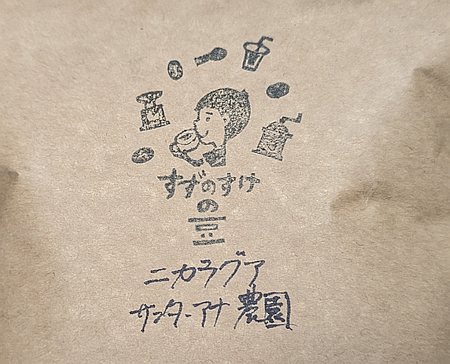 すずのすけ
の
豆
ニカラグア
サンターアナ農園